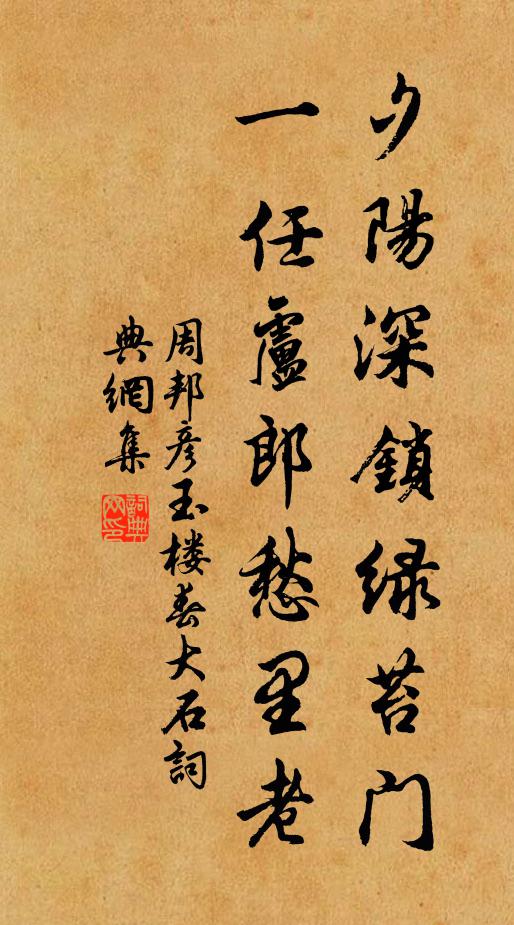 夕陽深鎖绿苔门
一任盧郎愁里老
周邦彦玉楼春大石詞
典網集
詞典網印